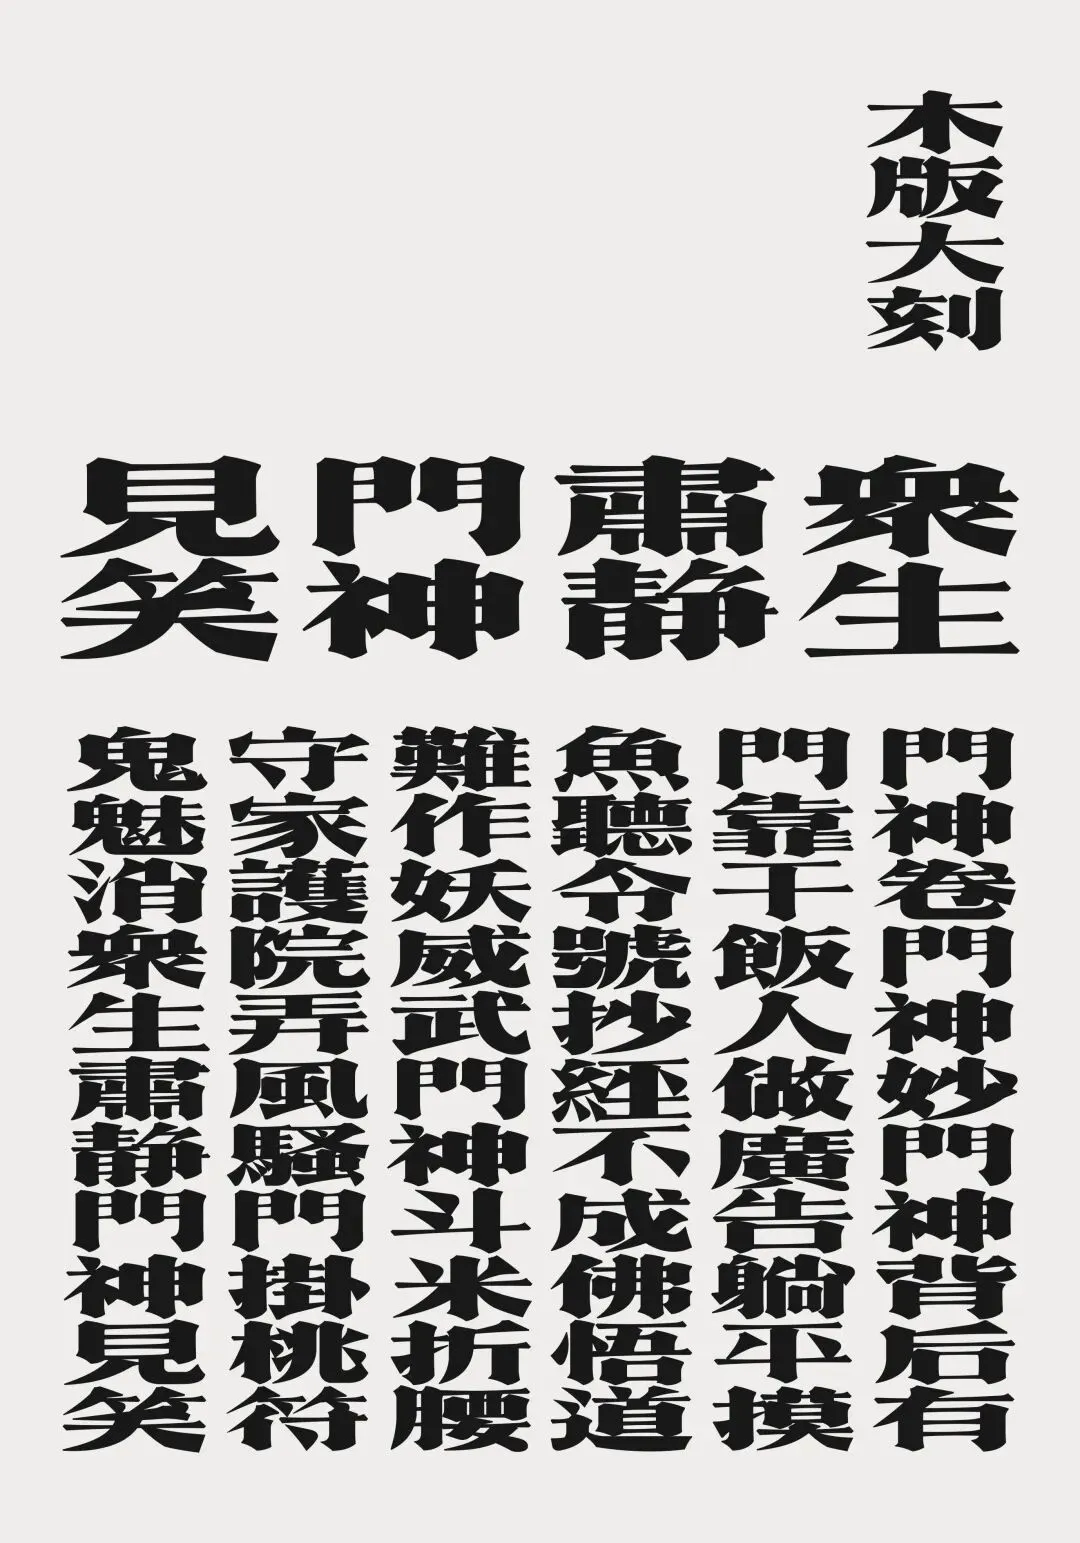 木版大刻
衆生
肅静
門神
見笑
門神卷門神妙門神背后有
門靠干飯人做廣告躺平摸
魚聽令號抄經不成佛悟道
難作妖威武門神斗米折腰
守家護院弄風騷門掛桃符
鬼魅消衆生肅静門神見笑